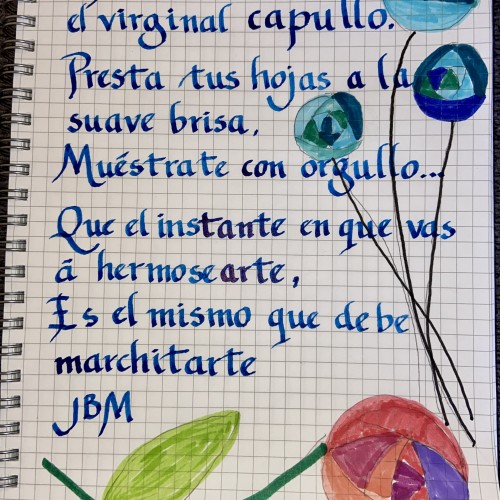 el virginal capullo.
Presta tus hojas a la
suave brisa,
Muéstrate con orgullo...
Que el instante en que vas
á hermosearte,
Es el mismo que debe
marchitarte
JBM